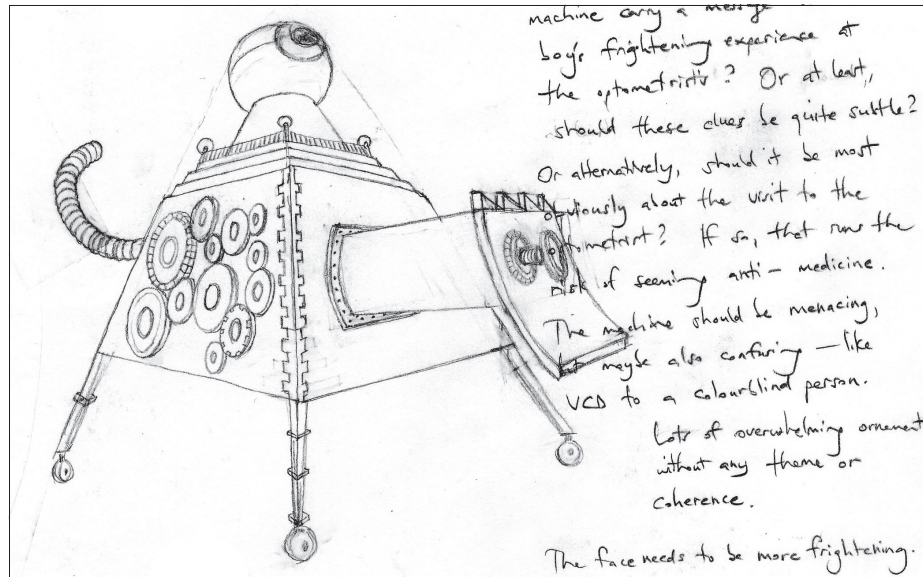 machine carry a message
boy's frightening experience at
the optometrist's? Or at least,
should these clues be quite subtle?
Or alternatively, should it be most
obviously about the visit to the
optometrist? If so, that runs the
risk of seeming anti-medicine.
The machine should be menacing,
but maybe also confusing – like
VCD to a colourblind person.
Lots of overwhelming ornament
without any theme or
coherence.
The face needs to be more frightening.